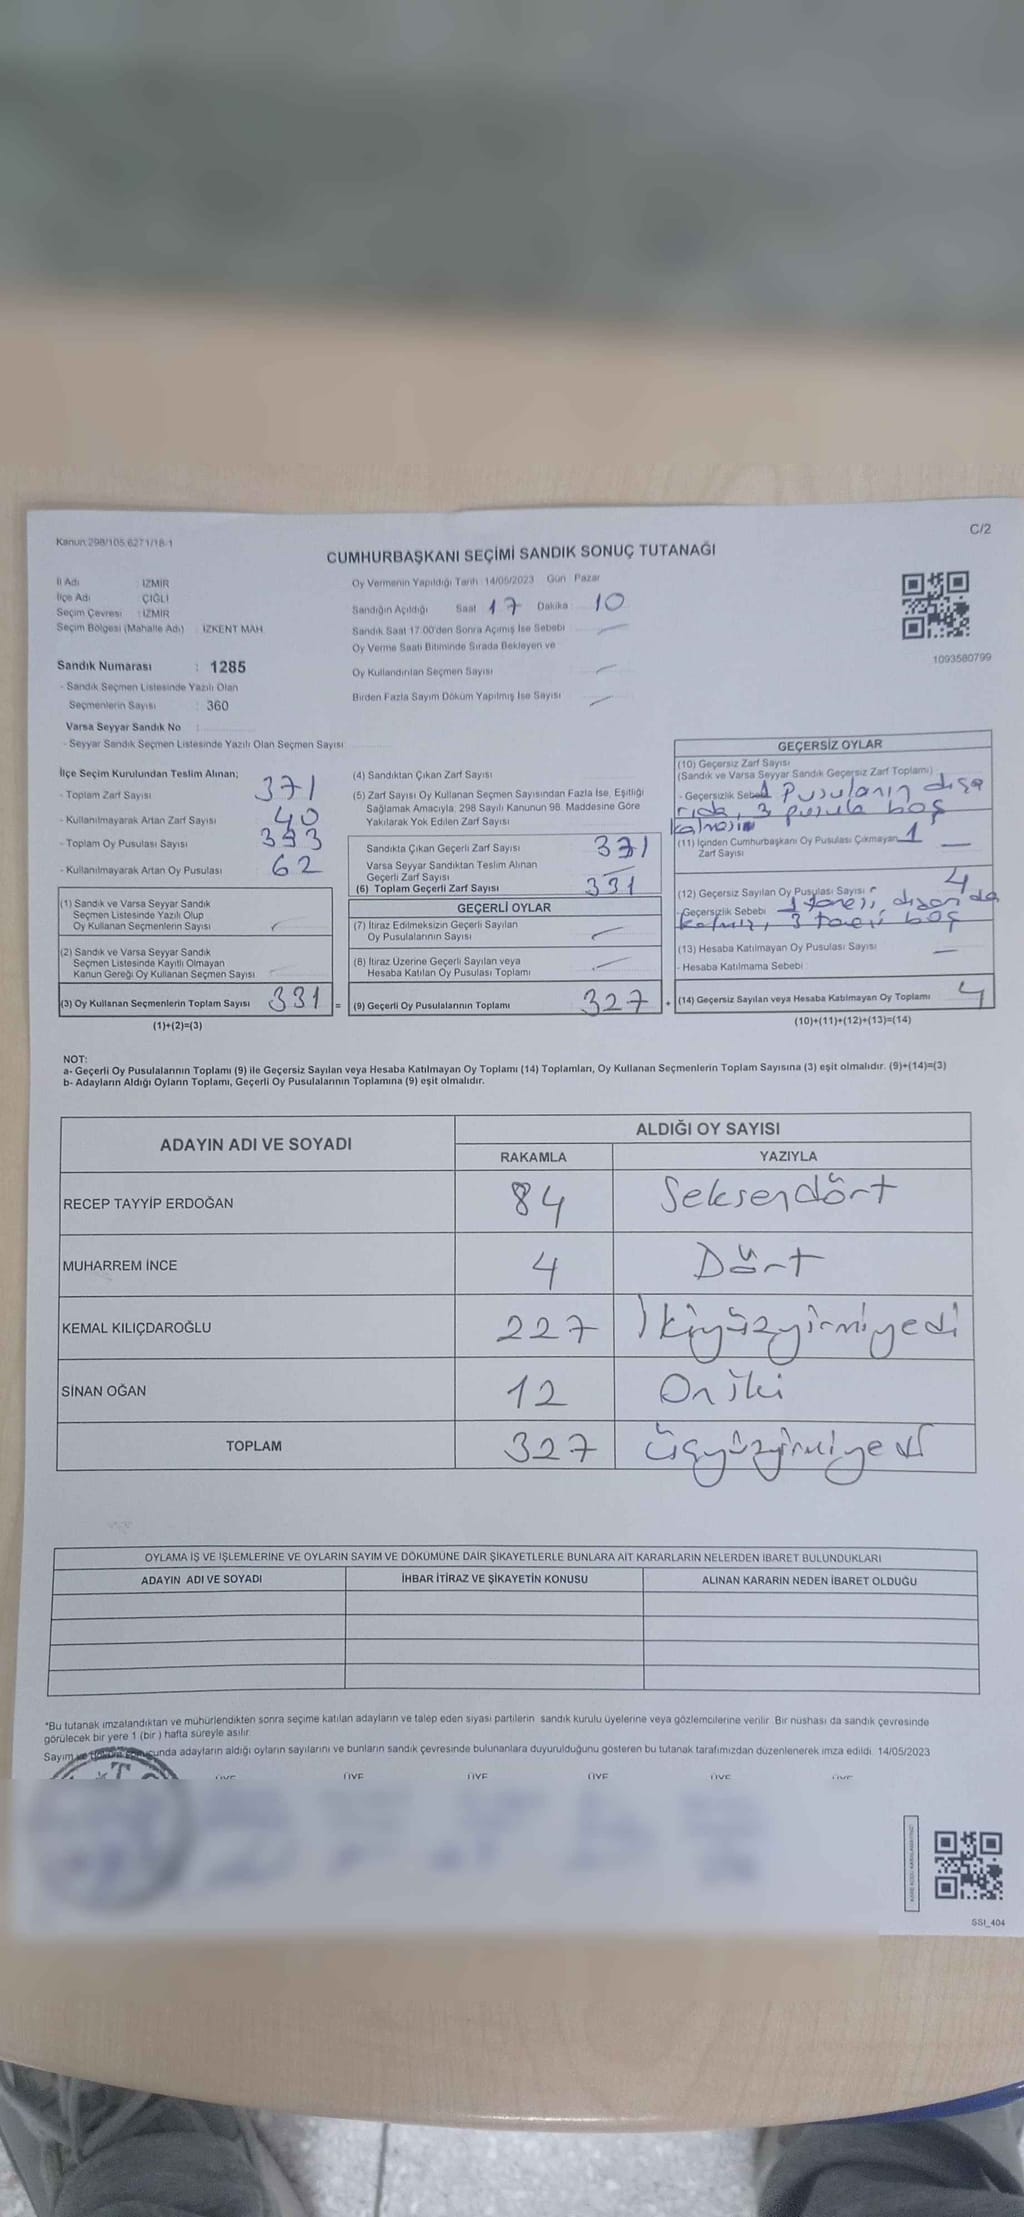 C/2
Kanun:298/105,6271/18-1
CUMHURBAŞKANI SEÇİMİ SANDIK SONUÇ TUTANAĞI
İl Adı : İZMİR
İlçe Adı : ÇİĞLİ
Seçim Çevresi : İZMİR
Seçim Bölgesi (Mahalle Adı) : İZKENT MAH
Sandık Numarası : 1285
- Sandık Seçmen Listesinde Yazılı Olan
Seçmenlerin Sayısı : 360
Varsa Seyyar Sandık No :
- Seyyar Sandık Seçmen Listesinde Yazılı Olan Seçmen Sayısı:
Oy Vermenin Yapıldığı Tarih : 14/05/2023 Gün : Pazar
Sandığın Açıldığı Saat : 17 Dakika : 10
Sandık Saat 17.00'den Sonra Açılmış İse Sebebi : —
Oy Verme Saati Bitiminde Sırada Bekleyen ve
Oy Kullandırılan Seçmen Sayısı : —
Birden Fazla Sayım Döküm Yapılmış İse Sayısı : —
1093580799
İlçe Seçim Kurulundan Teslim Alınan;
- Toplam Zarf Sayısı 371
- Kullanılmayarak Artan Zarf Sayısı 40
- Toplam Oy Pusulası Sayısı 393
- Kullanılmayarak Artan Oy Pusulası 62
(1) Sandık ve Varsa Seyyar Sandık
Seçmen Listesinde Yazılı Olup
Oy Kullanan Seçmenlerin Sayısı —
(2) Sandık ve Varsa Seyyar Sandık
Seçmen Listesinde Kayıtlı Olmayan
Kanun Gereği Oy Kullanan Seçmen Sayısı
(3) Oy Kullanan Seçmenlerin Toplam Sayısı 331 =
(1)+(2)=(3)
(4) Sandıktan Çıkan Zarf Sayısı
(5) Zarf Sayısı Oy Kullanan Seçmen Sayısından Fazla İse, Eşitliği
Sağlamak Amacıyla, 298 Sayılı Kanunun 98. Maddesine Göre
Yakılarak Yok Edilen Zarf Sayısı
Sandıkta Çıkan Geçerli Zarf Sayısı 331
Varsa Seyyar Sandıktan Teslim Alınan
Geçerli Zarf Sayısı —
(6) Toplam Geçerli Zarf Sayısı 331
GEÇERLİ OYLAR
(7) İtiraz Edilmeksizin Geçerli Sayılan
Oy Pusulalarının Sayısı —
(8) İtiraz Üzerine Geçerli Sayılan veya
Hesaba Katılan Oy Pusulası Toplamı —
(9) Geçerli Oy Pusulalarının Toplamı 327 +
GEÇERSİZ OYLAR
(10) Geçersiz Zarf Sayısı
(Sandık ve Varsa Seyyar Sandık Geçersiz Zarf Toplamı)
- Geçersizlik Sebebi 1 Pusulanın dışa
rıda, 3 pusula boş
kalması
(11) İçinden Cumhurbaşkanı Oy Pusulası Çıkmayan 1 —
Zarf Sayısı
(12) Geçersiz Sayılan Oy Pusulası Sayısı 4
- Geçersizlik Sebebi 1 tanesi dışarıda
kalmış, 3 tanesi boş
(13) Hesaba Katılmayan Oy Pusulası Sayısı —
- Hesaba Katılmama Sebebi
(14) Geçersiz Sayılan veya Hesaba Katılmayan Oy Toplamı 4
(10)+(11)+(12)+(13)=(14)
NOT:
a- Geçerli Oy Pusulalarının Toplamı (9) ile Geçersiz Sayılan veya Hesaba Katılmayan Oy Toplamı (14) Toplamları, Oy Kullanan Seçmenlerin Toplam Sayısına (3) eşit olmalıdır. (9)+(14)=(3)
b- Adayların Aldığı Oyların Toplamı, Geçerli Oy Pusulalarının Toplamına (9) eşit olmalıdır.
ADAYIN ADI VE SOYADI ALDIĞI OY SAYISI
RAKAMLA YAZIYLA
RECEP TAYYİP ERDOĞAN 84 Seksendört
MUHARREM İNCE 4 Dört
KEMAL KILIÇDAROĞLU 227 İkiyüzyirmiyedi
SİNAN OĞAN 12 Oniki
TOPLAM 327 Üçyüzyirmiyedi
OYLAMA İŞ VE İŞLEMLERİNE VE OYLARIN SAYIM VE DÖKÜMÜNE DAİR ŞİKAYETLERLE BUNLARA AİT KARARLARIN NELERDEN İBARET BULUNDUKLARI
ADAYIN ADI VE SOYADI İHBAR İTİRAZ VE ŞİKAYETİN KONUSU ALINAN KARARIN NEDEN İBARET OLDUĞU
*Bu tutanak imzalandıktan ve mühürlendikten sonra seçime katılan adayların ve talep eden siyasi partilerin sandık kurulu üyelerine veya gözlemcilerine verilir. Bir nüshası da sandık çevresinde
görülecek bir yere 1 (bir ) hafta süreyle asılır.
Sayım ve döküm sonucunda adayların aldığı oyların sayılarını ve bunların sandık çevresinde bulunanlara duyurulduğunu gösteren bu tutanak tarafımızdan düzenlenerek imza edildi. 14/05/2023
ÜYE ÜYE ÜYE ÜYE ÜYE ÜYE
SSI_404